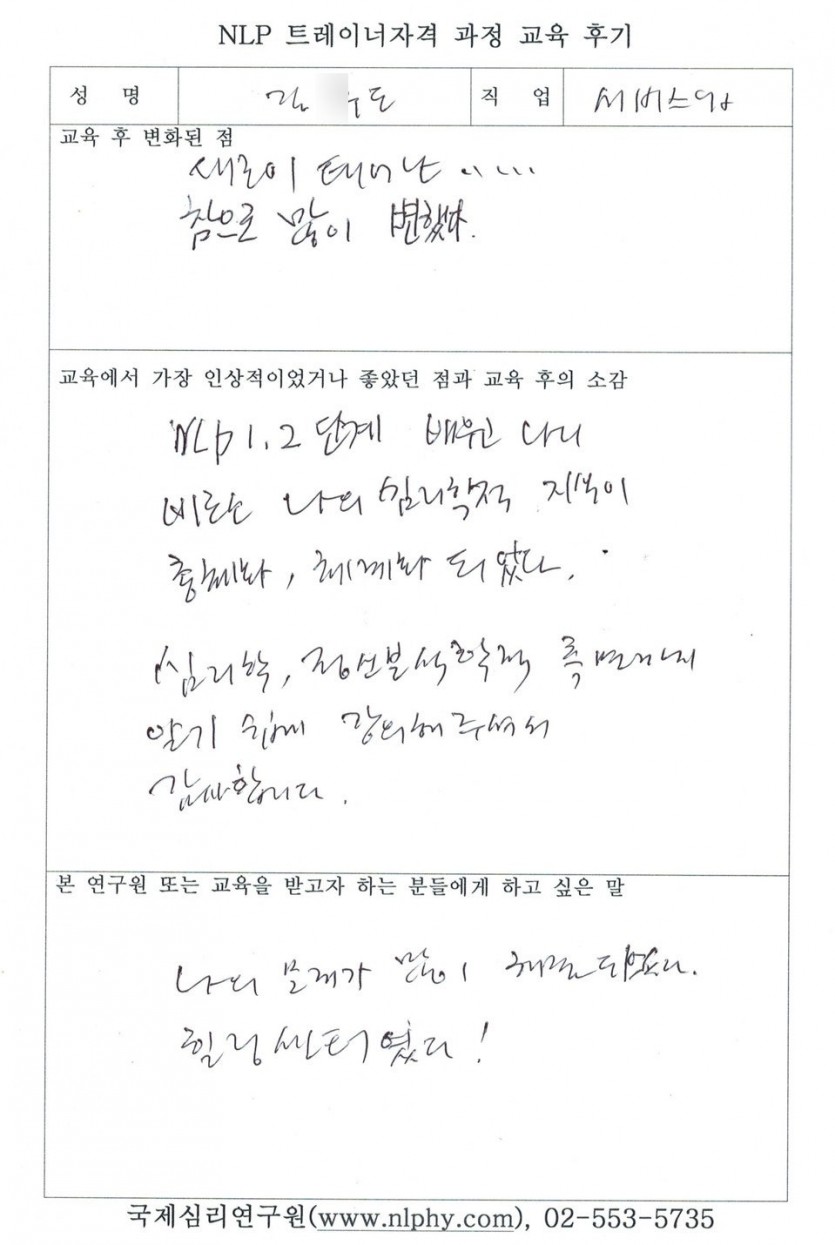 NLP 트레이너자격 과정 교육 후기
성 명 김 도 직 업 서비스업
교육 후 변화된 점
새로이 태어난 ‥…
참으로 많이 변했다.
교육에서 가장 인상적이었거나 좋았던 점과 교육 후의 소감
NLP 1, 2 단계 배우고 나니
비로소 나의 심리학적 지식이
총체화, 체계화 되었다.
심리학, 정신분석학적 측면까지
알기 쉽게 강의해주셔서
감사합니다.
본 연구원 또는 교육을 받고자 하는 분들에게 하고 싶은 말
나의 문제가 많이 해결되었다.
힐링센터였다!
국제심리연구원(www.nlphy.com), 02-553-5735